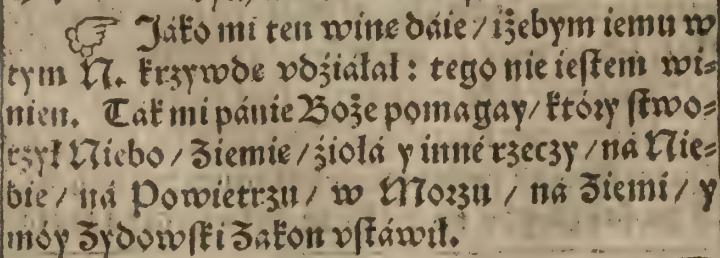 ☞ Jáko mi ten winę dáie / iżebym iemu w
tym N. krzywdę vdźiáłał : tego nie iestem wi⸗
nien. Ták mi pánie Boże pomagay / który stwo⸗
rzył Niebo / Ziemię / źiołá y inné rzeczy / ná Nie⸗
bie / ná Powietrzu / w Morzu / ná Ziemi / y
móy Zydowski Zakon vstáwił.